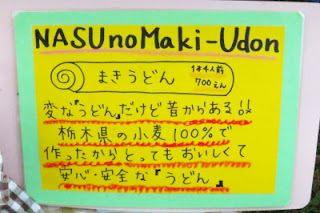 NASUnoMaki-Udon
まきうどん
1本4人前
700えん
変な『うどん』だけど昔からある!!
栃木県の小麦100%で
作ったからとってもおいしくて
安心・安全な『うどん』